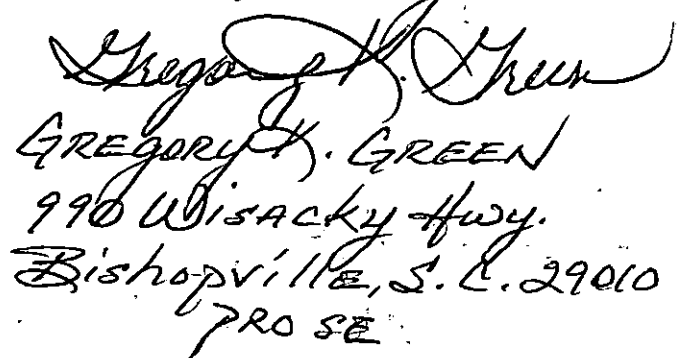 Gregory K. Green
GREGORY K. GREEN
990 WISACKY Hwy.
Bishopville, S.C. 29010
PRO SE